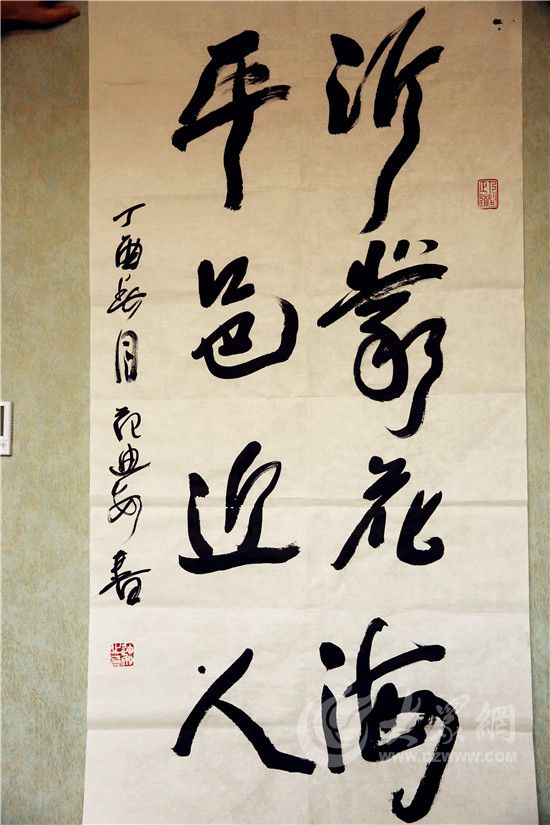 沂蒙花海
平邑近人
丁酉春月范迪安書
大众网
WWW.DZWWW.COM